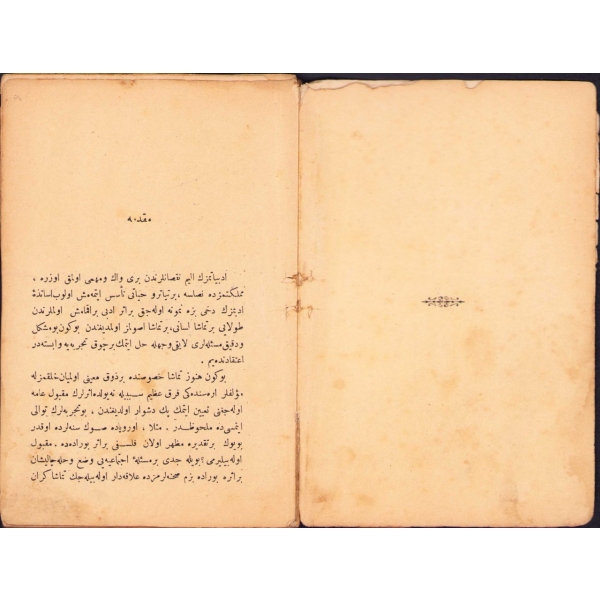 مقدمه
ادبیاتمزك الیم نقصانلرندن بری واك ومهمی اولمق اوزره ،
مملكتمزده نصلسه ، برتیاترو حیاتی تأسس ایتمه‌مش اولوب اساتذۀ
ادبمزك دخی بزه نمونه اوله‌جق براثر ادبی براقمامش اولملرندن
طولایی برتماشا لسانی، برتماشا اصولمز اولمدیغندن بوكون بومشكل
ودقیق مسئله‌لری لایقی وجهله حل ایتمك برچوق تجربه‌یه وابسته‌در
اعتقادنده‌یم .
بوكون هنوز تماشا خصوصنده برذوق معینی اولمیان خلقمزله
مؤلفلر اره‌سنده‌كی فرق عظیم سببیله نه‌یولده اثرلرك مقبول عامه
اوله‌جغنی تعیین ایتمك پك دشوار اولدیغندن ، بوتجربه‌لرك توالی
ایتمسی ده ملحوظدر . مثلا ، اوروپاده صوك سنه‌لرده اوقدر
بویوك برتقدیره مظهر اولان فلسفی براثر بوراده‌ده مقبول
اوله‌بیلیرمی ؟ بویله جدی برمسئلۀ اجتماعیه‌یی وضع وحله چالیشان
براثره بوراده بزم صحنه‌لرمزده علاقه‌دار اوله‌بیله‌جك تماشاكران